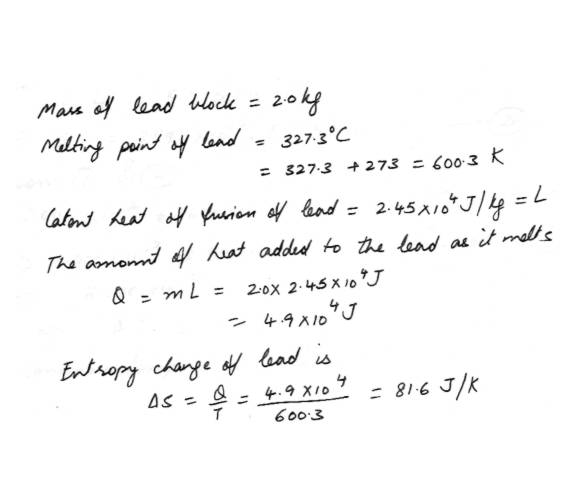 Mass of lead block = 2.0 kg
Melting point of lead = 327.3°C
= 327.3 + 273 = 600.3 K
Latent heat of fusion of lead = 2.45×10⁴ J/kg = L
The amount of heat added to the lead as it melts
Q = mL = 2.0× 2.45×10⁴ J
= 4.9×10⁴ J
Entropy change of lead is
ΔS = Q/T = 4.9×10⁴/600.3 = 81.6 J/K